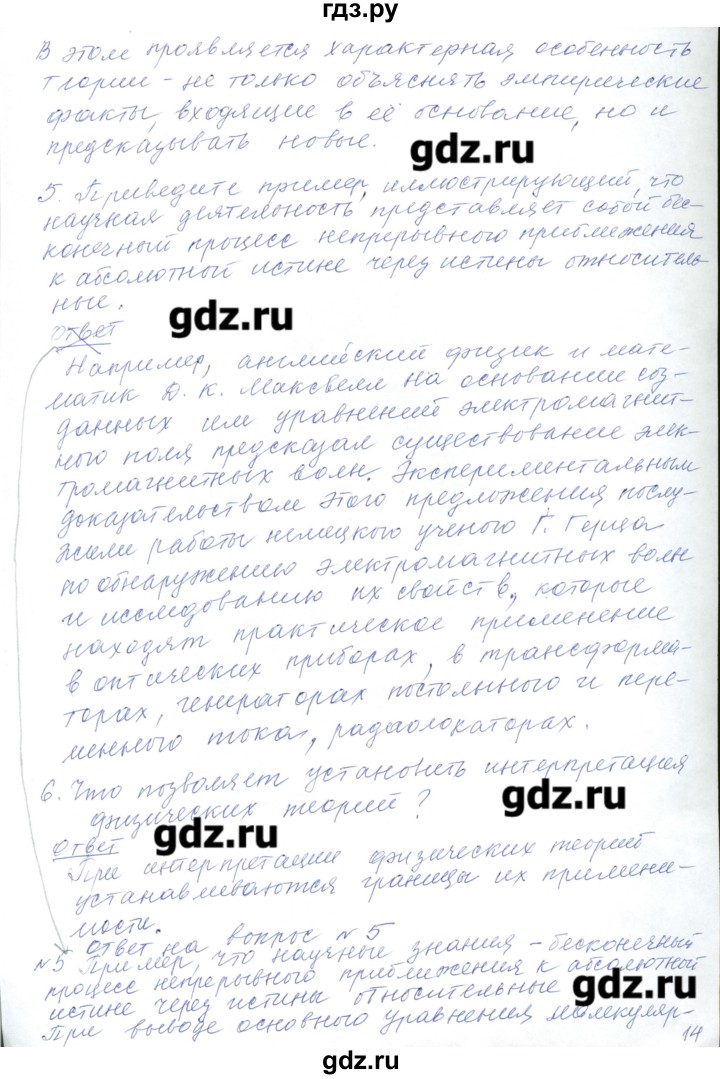 гдз.ру
В этом проявляется характерная особенность
теории - не только объяснять эмпирические
факты, входящие в её основание, но и
предсказывать новые.
gdz.ru
5. Приведите пример, иллюстрирующий, что
научная деятельность представляет собой бес-
конечный процесс непрерывного приближения
к абсолютной истине через истины относитель-
ные.
gdz.ru
Ответ
Например, английский физик и мате-
матик Д. К. Максвелл на основании соз-
данных им уравнений электромагнит-
ного поля предсказал существование элек-
тромагнитных волн. Экспериментальным
доказательством этого предложения послу-
жили работы немецкого ученого Г. Герца
по обнаружению электромагнитных волн
и исследованию их свойств, которые
находят практическое применение
в оптических приборах, в трансформа-
торах, генераторах постоянного и пере-
менного тока, радиолокаторах.
6. Что позволяет установить интерпретация
физических теорий?
gdz.ru
gdz.ru
Ответ
При интерпретации физических теорий
устанавливаются границы их примени-
мости.
Ответ на вопрос №5
№5 Пример, что научные знания - бесконечный
процесс непрерывного приближения к абсолютной
истине через истины относительные
gdz.ru
При выводе основного уравнения молекуляр-
14
gdz.ru